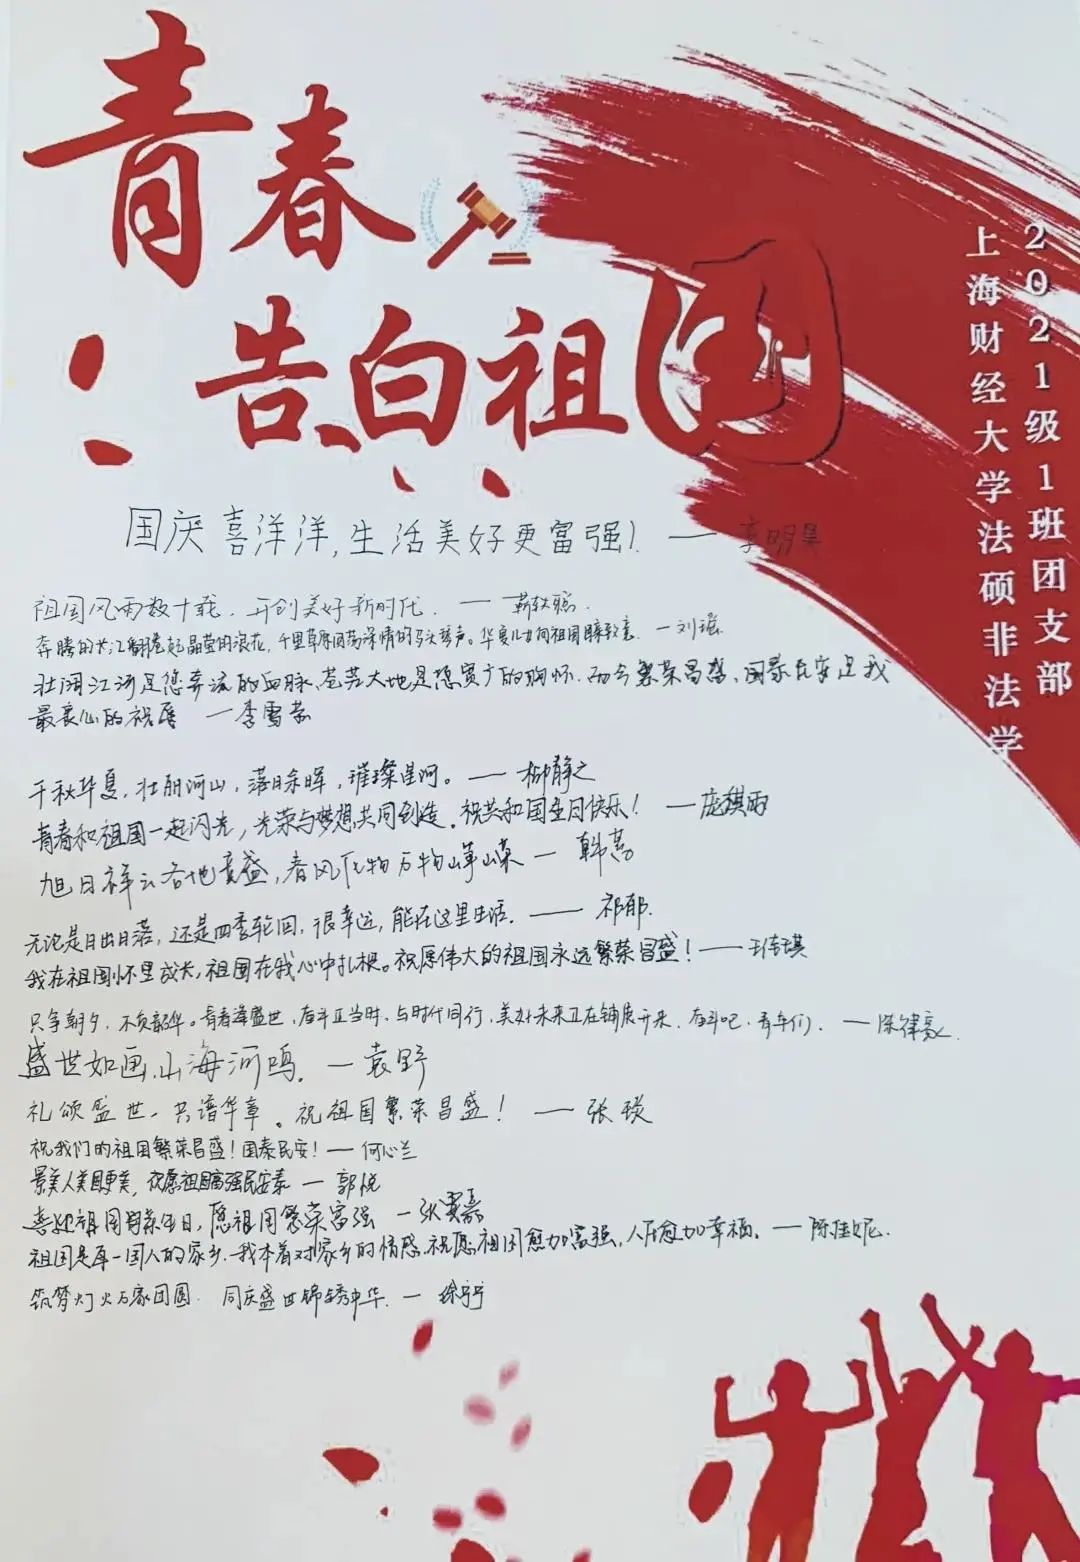 青春
告白祖国
2021级1班团支部
上海财经大学法硕非法学
国庆喜洋洋,生活美好更富强! —— 李明昊
祖国风雨数十载,开创美好新时代. ——
奔腾的长江翻卷起晶莹的浪花,千里草原回荡深情的马头琴声。华夏儿女向祖国母亲致意. —刘瑶
壮阔江河是您奔流的血脉,苍茫大地是您宽广的胸怀.而今繁荣昌盛、国泰民安是我
最衷心的祝愿 —李雪
千秋华夏,壮丽河山,落日余晖,璀璨星河。——柳静之
青春和祖国一起闪光,光荣与梦想共同创造。祝共和国生日快乐! —庞祺雨
旭日祥云各地喜盛,春风化物万物峥嵘 — 韩
无论是日出日落,还是四季轮回,很幸运,能在这里生活. —— 祁郁.
我在祖国怀里成长,祖国在我心中扎根。祝愿伟大的祖国永远繁荣昌盛!——王倩琪
只争朝夕,不负韶华。青春逢盛世,奋斗正当时,与时代同行,美好未来正在铺展开来,奋斗吧,青年们. —陈律豪.
盛世如画,山海河鸣. — 袁野
礼颂盛世,共谱华章。祝祖国繁荣昌盛! —— 张琰
祝我们的祖国繁荣昌盛!国泰民安!—— 何心兰
景美人美国更美,祝愿祖国富强民安泰 — 郭悦
喜迎祖国母亲生日,愿祖国繁荣富强 —张霁嘉
祖国是每一国人的家乡.我本着对家乡的情感,祝愿祖国愈加富强,人民愈加幸福. ——陈佳妮.
筑梦灯火万家团圆 同庆盛世锦绣中华. — 徐宁宁